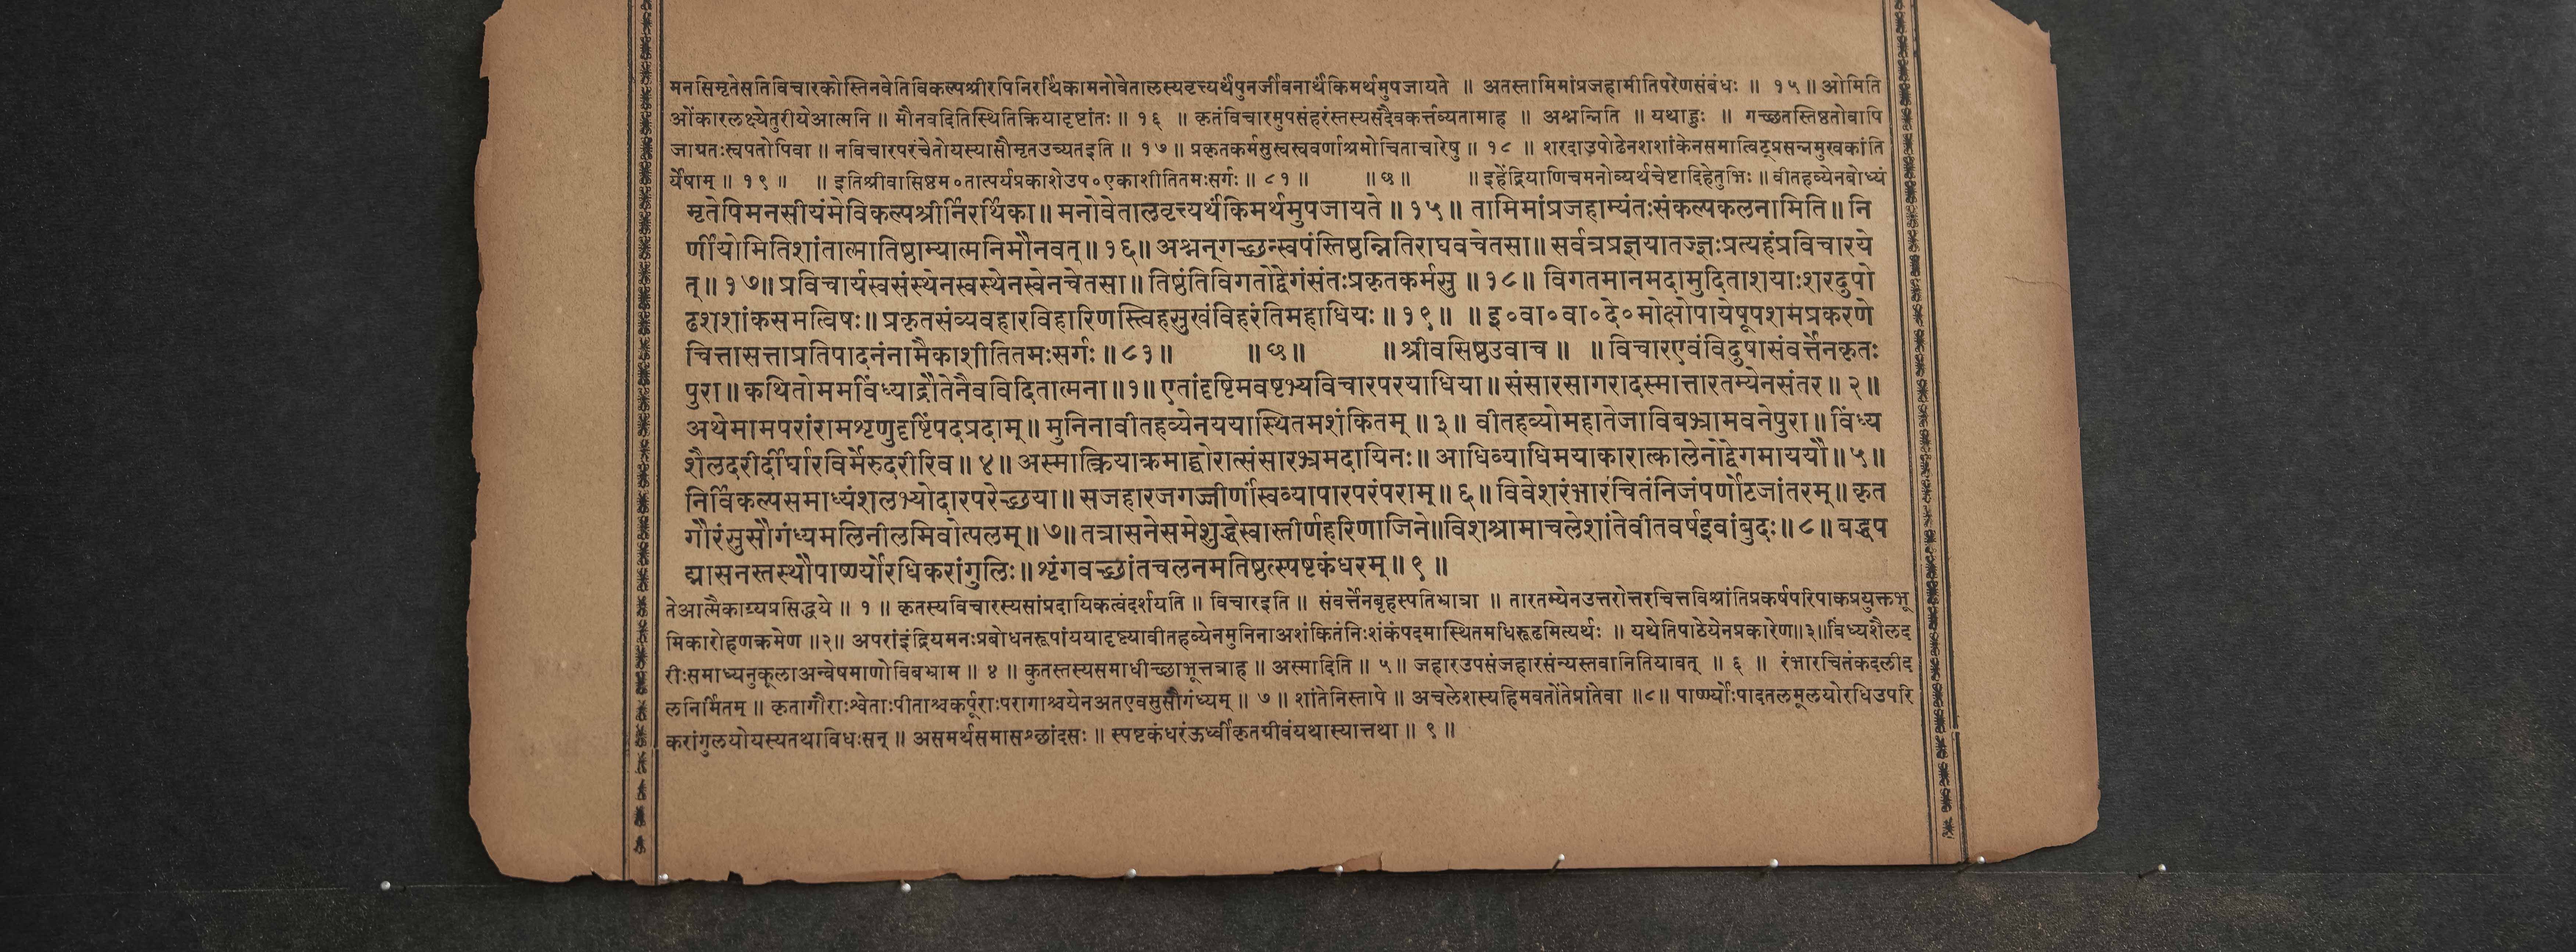 मनसिमृतेसतिविचारकोस्तिनवेतिविकल्पश्रीरपिनिरर्थिकामनोवेतालस्यवृत्त्यर्थंपुनर्जीवनार्थंकिमर्थमुपजायते ॥ अतस्तामिमांप्रजहामीतिपरेणसंबंधः ॥ १५ ॥ ओमिति
ओंकारलक्ष्येतुरीयेआत्मनि ॥ मौनवदितिस्थितिक्रियादृष्टांतः ॥ १६ ॥ कृतंविचारमुपसंहरंस्तस्यसदैवकर्त्तव्यतामाह ॥ अश्नन्निति ॥ यथाहुः ॥ गच्छतस्तिष्ठतोवापि
जाग्रतःस्वपतोपिवा ॥ नविचारपरंचेतोयस्यासौमृतउच्यतइति ॥ १७ ॥ प्रकृतकर्मसुस्वस्ववर्णाश्रमोचिताचारेषु ॥ १८ ॥ शरदाउपोढेनशशांकेनसमात्विट्प्रसन्नमुखकांति
र्येषाम् ॥ १९ ॥ ॥ इतिश्रीवासिष्ठम॰तात्पर्यप्रकाशेउप॰एकाशीतितमःसर्गः ॥ ८१ ॥ ॥ छ ॥ ॥ इहेंद्रियाणिचमनोव्यर्थचेष्टादिहेतुभिः ॥ वीतहव्येनबोध्यं
मृतेपिमनसीयंमेविकल्पश्रीर्निरर्थिका ॥ मनोवेतालवृत्त्यर्थंकिमर्थमुपजायते ॥ १५ ॥ तामिमांप्रजहाम्यंतःसंकल्पकलनामिति ॥ नि
र्णीयोमितिशांतात्मातिष्ठाम्यात्मनिमौनवत् ॥ १६ ॥ अश्नन्गच्छन्स्वपंस्तिष्ठन्नितिराघवचेतसा ॥ सर्वत्रप्रज्ञयातज्ज्ञःप्रत्यहंप्रविचारये
त् ॥ १७ ॥ प्रविचार्यस्वसंस्थेनस्वस्थेनस्वेनचेतसा ॥ तिष्ठंतिविगतोद्वेगंसंतःप्रकृतकर्मसु ॥ १८ ॥ विगतमानमदामुदिताशयाःशरदुपो
ढशशांकसमत्विषः ॥ प्रकृतसंव्यवहारविहारिणस्त्विहसुखंविहरंतिमहाधियः ॥ १९ ॥ ॥ इ॰वा॰वा॰दे॰मोक्षोपायेषूपशमप्रकरणे
चित्तासत्ताप्रतिपादनंनामैकाशीतितमःसर्गः ॥ ८१ ॥ ॥ छ ॥ ॥ श्रीवसिष्ठउवाच ॥ ॥ विचारएवंविदुषासंवर्त्तेनकृतः
पुरा ॥ कथितोममविंध्याद्रौतेनैवविदितात्मना ॥ १ ॥ एतांदृष्टिमवष्टभ्यविचारपरयाधिया ॥ संसारसागरादस्मात्तारतम्येनसंतर ॥ २ ॥
अथेमामपरांरामशृणुदृष्टिंपदप्रदाम् ॥ मुनिनावीतहव्येनययास्थितमशंकितम् ॥ ३ ॥ वीतहव्योमहातेजाविबभ्रामवनेपुरा ॥ विंध्य
शैलदरीर्दीर्घारविर्मेरुदरीरिव ॥ ४ ॥ अस्मात्क्रियाक्रमाद्घोरात्संसारभ्रमदायिनः ॥ आधिव्याधिमयाकारात्कालेनोद्वेगमाययौ ॥ ५ ॥
निर्विकल्पसमाध्यंशलभ्योदारपरेच्छया ॥ सजहारजगज्जीर्णांस्वव्यापारपरंपराम् ॥ ६ ॥ विवेशरंभारचितंनिजंपर्णोटजांतरम् ॥ कृत
गौरंसुसौगंध्यमलिनीलमिवोत्पलम् ॥ ७ ॥ तत्रासनेसमेशुद्धेस्वास्तीर्णहरिणाजिने ॥ विशश्रामाचलेशांतेवीतवर्षइवांबुदः ॥ ८ ॥ बद्धप
द्मासनस्तस्थौपार्ष्ण्योरधिकरांगुलिः ॥ शृंगवच्छांतचलनमतिष्ठत्स्पष्टकंधरम् ॥ ९ ॥
तेआत्मैकाग्र्यप्रसिद्धये ॥ १ ॥ कृतस्यविचारस्यसांप्रदायिकत्वंदर्शयति ॥ विचारइति ॥ संवर्त्तेनबृहस्पतिभ्रात्रा ॥ तारतम्येनउत्तरोत्तरचित्तविश्रांतिप्रकर्षपरिपाकप्रयुक्तभू
मिकारोहणक्रमेण ॥ २ ॥ अपरांइंद्रियमनःप्रबोधनरूपांययादृष्ट्यावीतहव्येनमुनिनाअशंकितंनिःशंकंपदमास्थितमधिरूढमित्यर्थः ॥ यथेतिपाठेयेनप्रकारेण ॥ ३ ॥ विंध्यशैलद
रीःसमाध्यनुकूलाअन्वेषमाणोविबभ्राम ॥ ४ ॥ कुतस्तस्यसमाधीच्छाभूत्तत्राह ॥ अस्मादिति ॥ ५ ॥ जहारउपसंजहारसंन्यस्तवानितियावत् ॥ ६ ॥ रंभारचितंकदलीद
लनिर्मितम् ॥ कृतागौराःश्वेताःपीताश्चकर्पूराःपरागाश्चयेनअतएवसुसौगंध्यम् ॥ ७ ॥ शांतेनिस्तापे ॥ अचलेशस्यहिमवतोंतेप्रांतेवा ॥ ८ ॥ पार्ष्ण्योःपादतलमूलयोरधिउपरि
करांगुलयोयस्यतथाविधःसन् ॥ असमर्थसमासश्छांदसः ॥ स्पष्टकंधरंऊर्ध्वीकृतग्रीवंयथास्यात्तथा ॥ ९ ॥